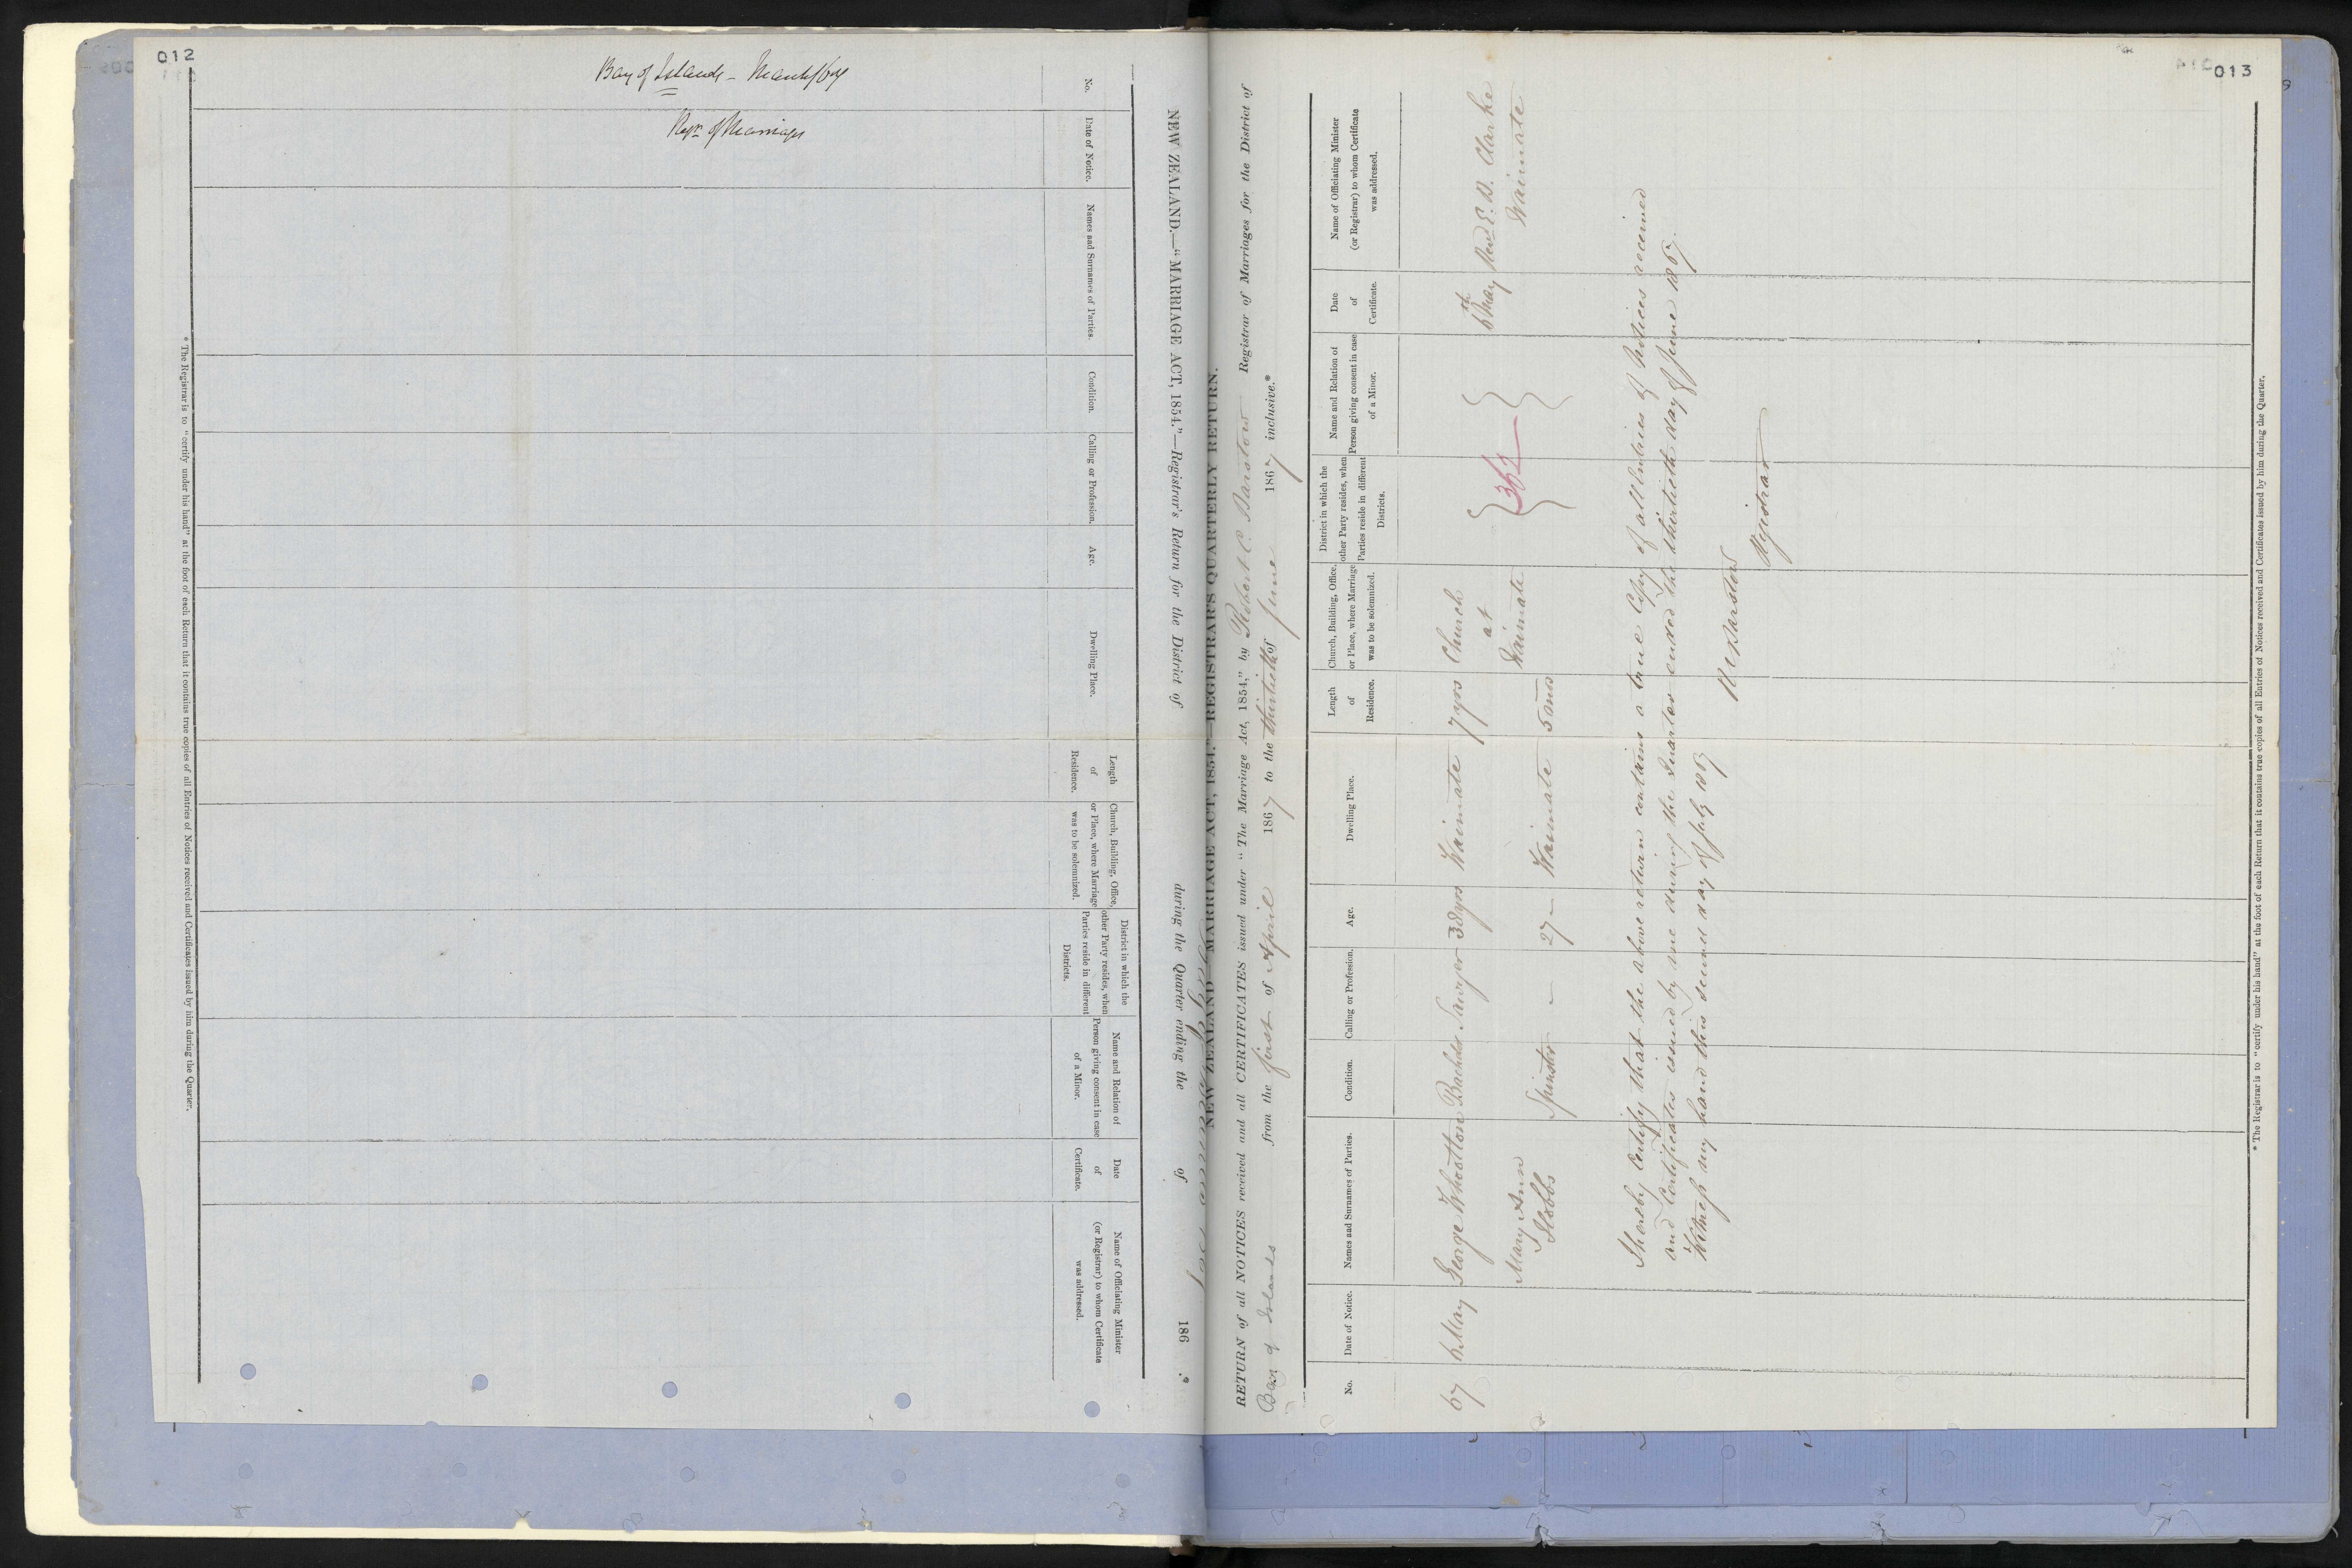 012
Bay of Islands - March/67
Regn of Marriages
NEW ZEALAND.—"MARRIAGE ACT, 1854."—Registrar's Return for the District of during the Quarter ending the of 186 .*
No.
Date of Notice.
Names and Surnames of Parties.
Condition.
Calling or Profession.
Age.
Dwelling Place.
Length
of
Residence.
Church, Building, Office,
or Place, where Marriage
was to be solemnized.
District in which the
other Party resides, when
Parties reside in different
Districts.
Name and Relation of
Person giving consent in case
of a Minor.
Date
of
Certificate.
Name of Officiating Minister
(or Registrar) to whom Certificate
was addressed.
* The Registrar is to "certify under his hand" at the foot of each Return that it contains true copies of all Entries of Notices received and Certificates issued by him during the Quarter.
013
NEW ZEALAND—"MARRIAGE ACT, 1854."—REGISTRAR'S QUARTERLY RETURN.
RETURN of all NOTICES received and all CERTIFICATES issued under "The Marriage Act, 1854," by Robert C. Barstow Registrar of Marriages for the District of
Bay of Islands from the first of April 1867 to the thirtieth of June 1867 inclusive.*
No.
Date of Notice.
Names and Surnames of Parties.
Condition.
Calling or Profession.
Age.
Dwelling Place.
Length
of
Residence.
Church, Building, Office,
or Place, where Marriage
was to be solemnized.
District in which the
other Party resides, when
Parties reside in different
Districts.
Name and Relation of
Person giving consent in case
of a Minor.
Date
of
Certificate.
Name of Officiating Minister
(or Registrar) to whom Certificate
was addressed.
67 6 May George Wheatton Bachelor Sawyer 38 yrs Waimate 7 yrs Church 6th May Revd E. B. Clarke
at
362
Mary Ann Spinster - 27 - Waimate 5 mos Waimate Waimate
Hobbs
I hereby Certify that the above return contains a true Copy of all Entries of Notices received
and Certificates issued by me during the Quarter ended the thirtieth day of June 1867.
Witness my hand this second day of July 1867
R C Barstow
Registrar
* The Registrar is to "certify under his hand" at the foot of each Return that it contains true copies of all Entries of Notices received and Certificates issued by him during the Quarter.